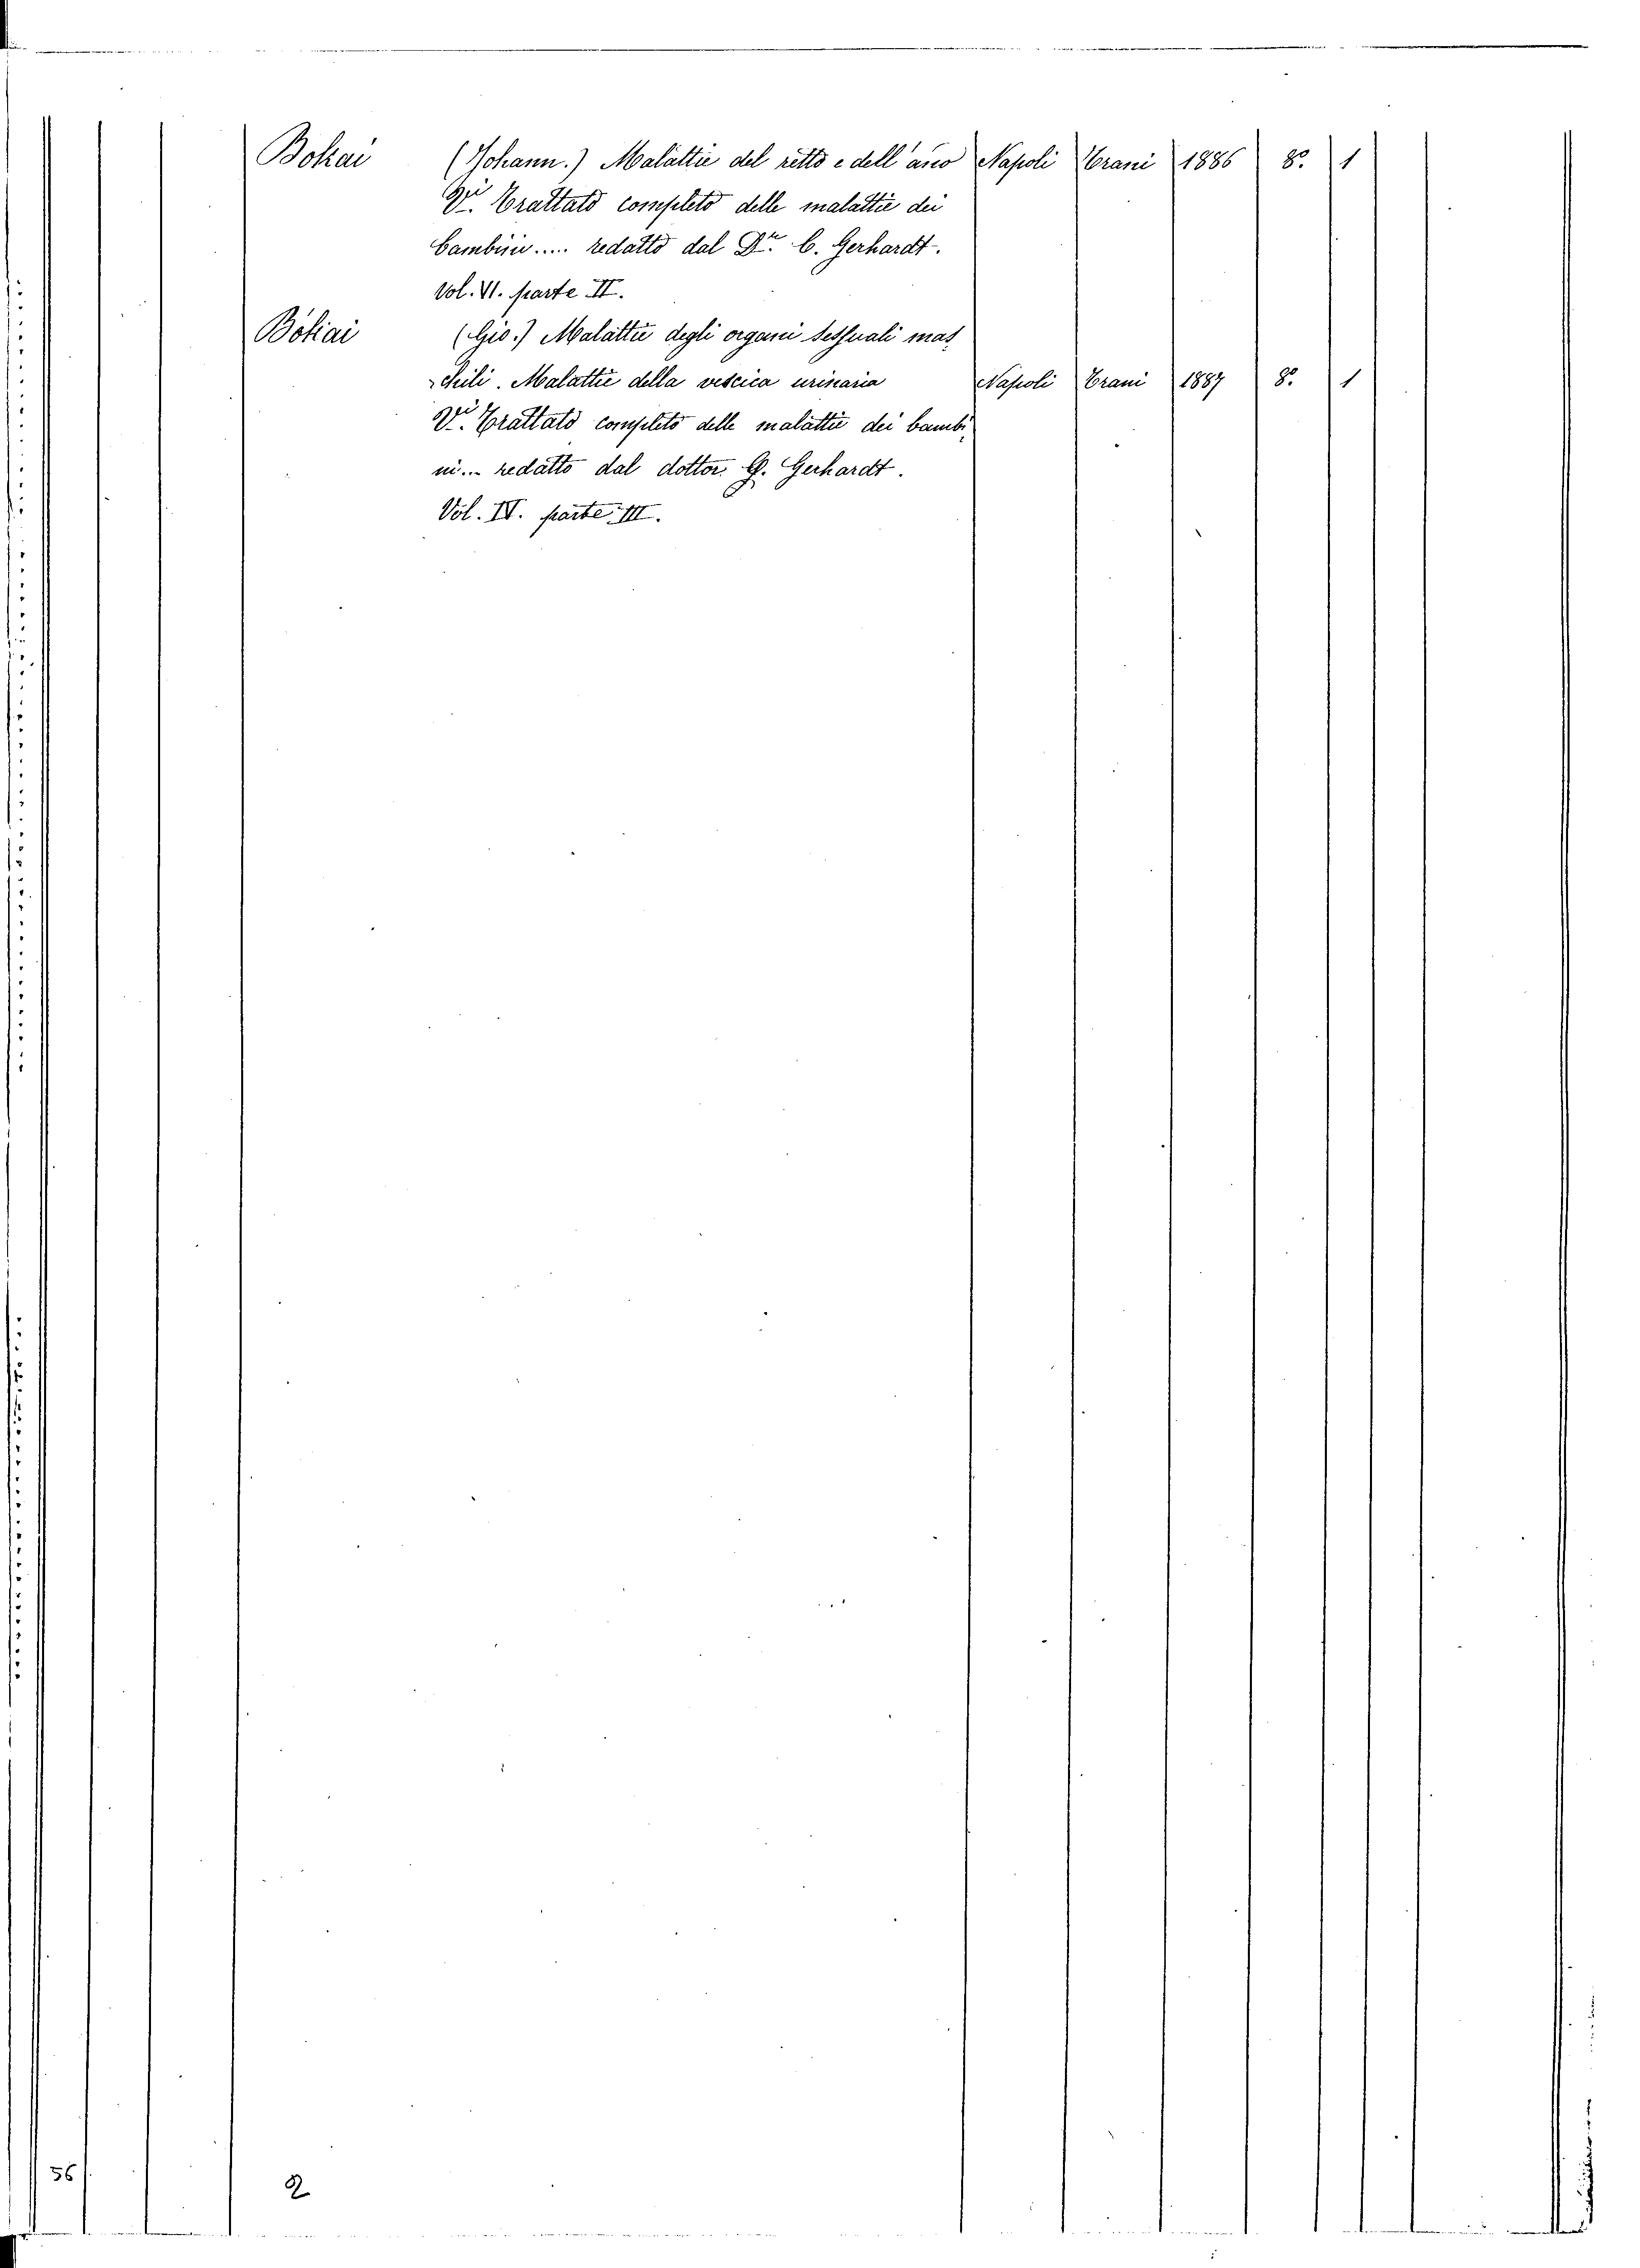 Bokai (Johann.) Malattie del retto e dell'ano Napoli Trani 1886 8.° 1
Vi. Trattato completo delle malattie dei
bambini.... redatto dal Dr. C. Gerhardt.
Vol. VI. parte II.
Bókai (Gio.) Malattie degli organi sessuali mas
chili. Malattie della vescica urinaria Napoli Trani 1887 8.° 1
Vi. Trattato completo delle malattie dei bambi
ni... redatto dal dottor G. Gerhardt.
Vol. IV. parte III.
56
2